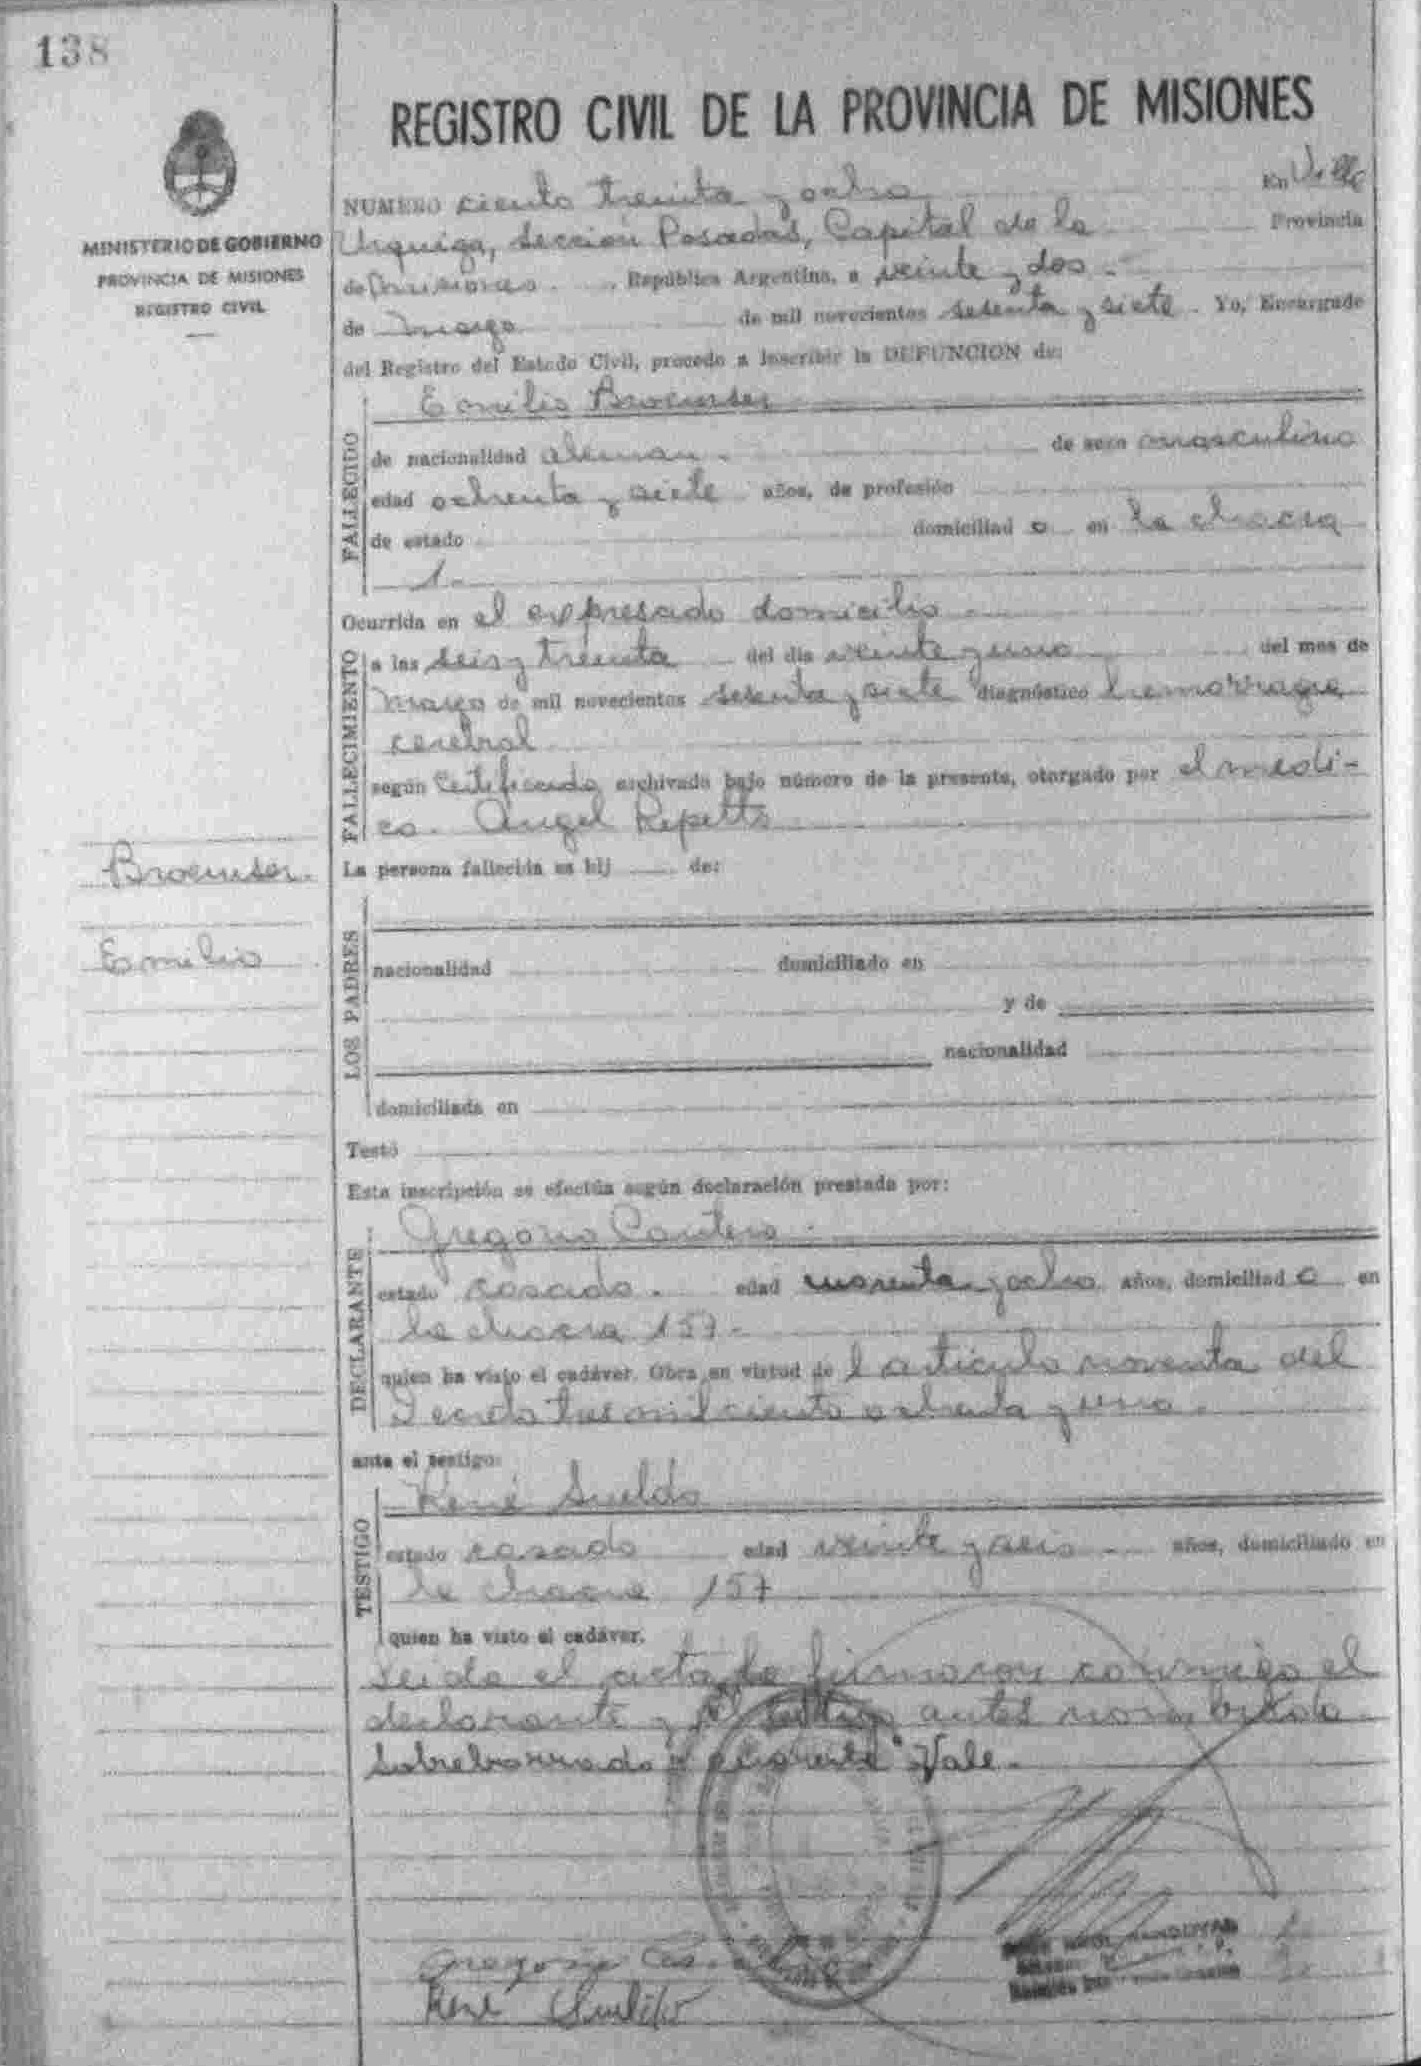 138
REGISTRO CIVIL DE LA PROVINCIA DE MISIONES
MINISTERIO DE GOBIERNO
PROVINCIA DE MISIONES
REGISTRO CIVIL
NUMERO ciento treinta y ocho En Villa
Urquiza, Sección Posadas, Capital de la Provincia
de Misiones República Argentina, a veinte y dos
de marzo de mil novecientos sesenta y siete. Yo, Encargado
del Registro del Estado Civil, procedo a inscribir la DEFUNCION de:
FALLECIDO
Emilio Broemser
de nacionalidad aleman de sexo masculino
edad ochenta y siete años, de profesión
de estado domiciliad o en la chacra
1.
Ocurrida en el expresado domicilio
FALLECIMIENTO
a las seis y treinta del día veinte y uno del mes de
marzo de mil novecientos sesenta y siete diagnóstico hemorragia
cerebral
según Certificado archivado bajo número de la presente, otorgado por el medi-
co. Angel Repetto
Broemser.
La persona fallecida es hij de:
Emilio
LOS PADRES
nacionalidad domiciliado en
y de
nacionalidad
domiciliada en
Testó
Esta inscripción se efectúa según declaración prestada por:
DECLARANTE
Gregorio Cantero
estado casado. edad cuarenta y ocho años, domiciliad o en
la chacra 157.
quien ha visto el cadáver. Obra en virtud de l articulo noventa del
Decreto tres mil ciento ochenta y uno.
ante el testigo:
TESTIGO
René Sueldo
estado casado edad veinte y seis años, domiciliado en
la chacra 157
quien ha visto el cadáver.
Leida el acta la firmaron conmigo el
declarante y el testigo antes nombrado
Sobreborrado "cuarenta" Vale.
Gregorio
René